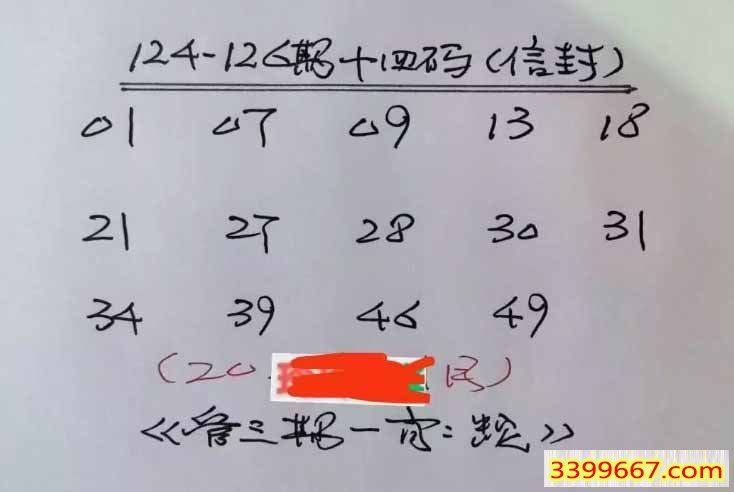 124-126期十四码(信封)
01 07 09 13 18
21 27 28 30 31
34 39 46 49
(20.
《管三期一
3399667.com